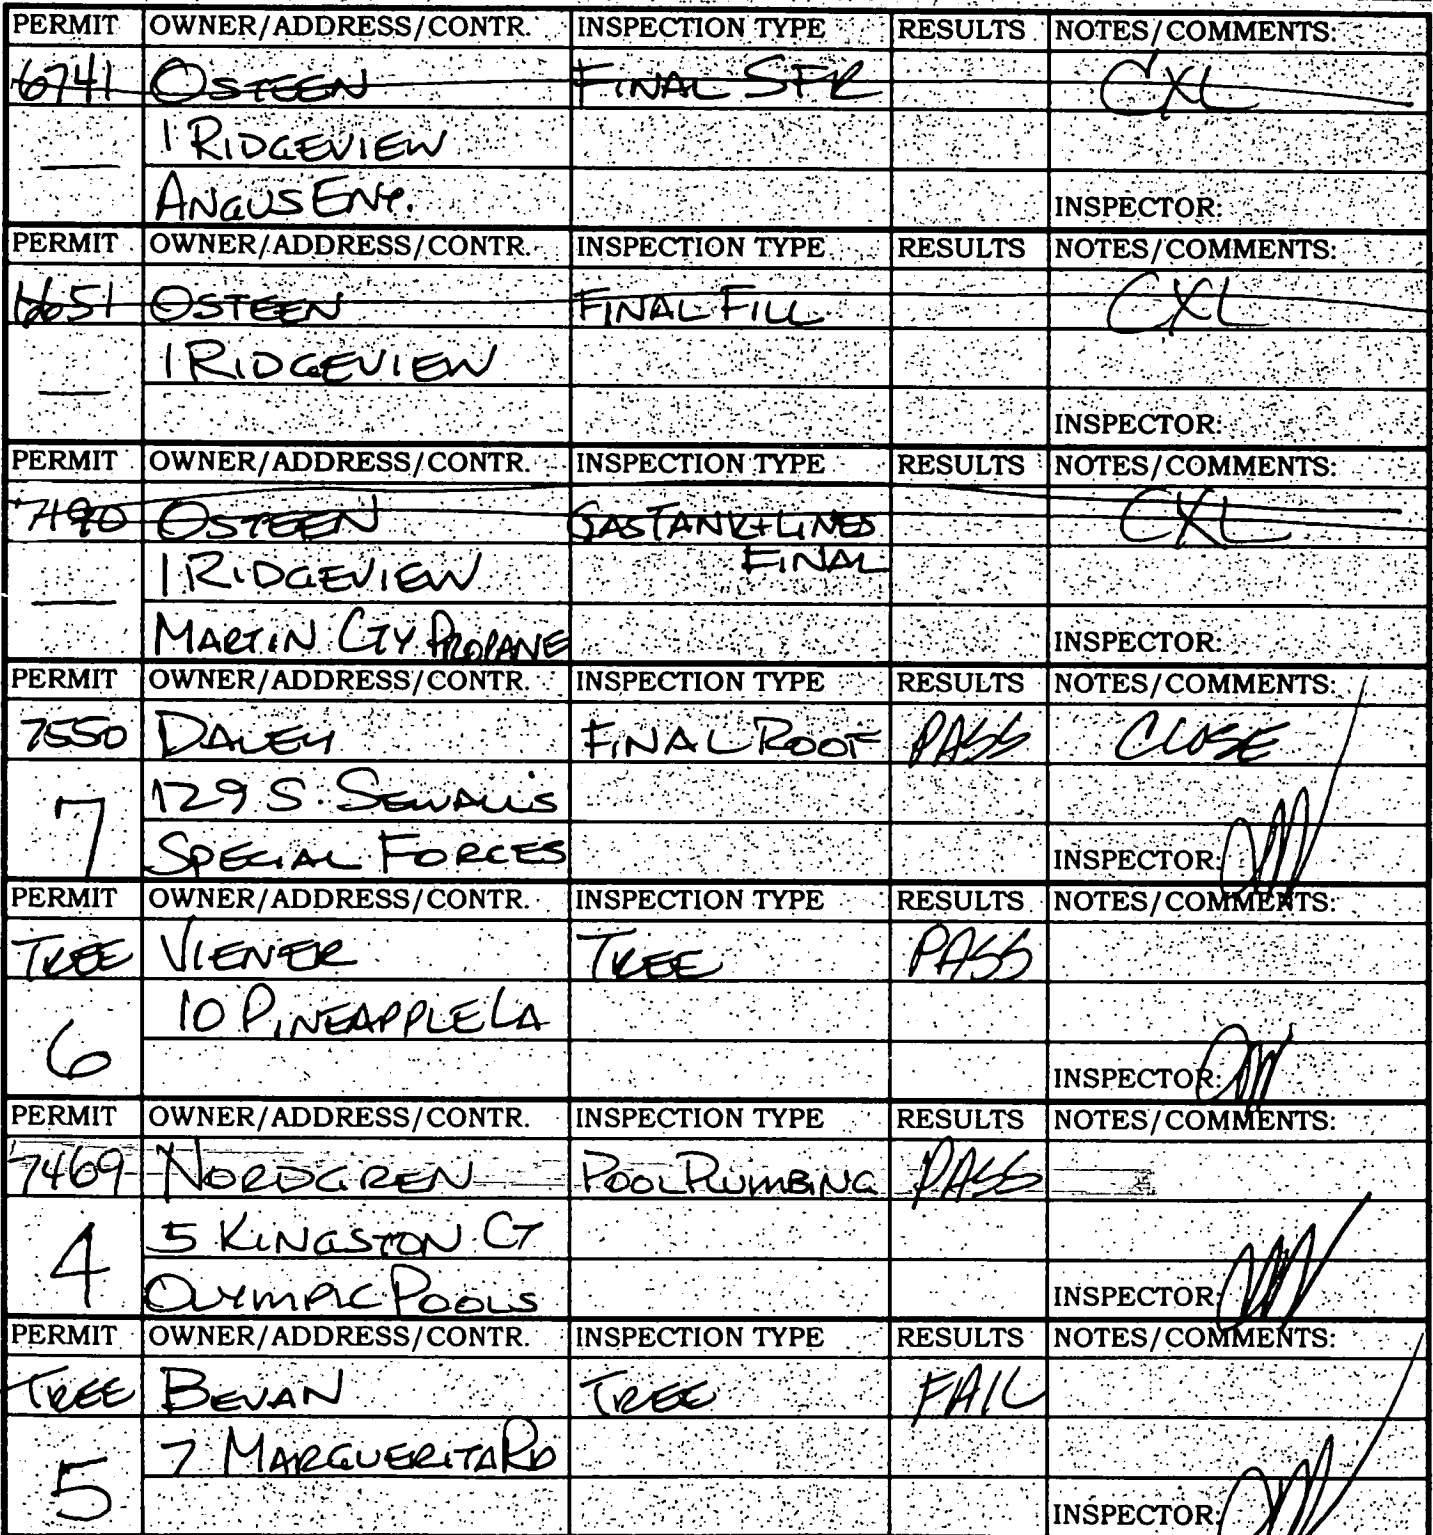 PERMIT OWNER/ADDRESS/CONTR. INSPECTION TYPE RESULTS NOTES/COMMENTS:
6741 OSTEEN FINAL SFR CXL
1 RIDGEVIEW
— ANGUS ENT. INSPECTOR:
PERMIT OWNER/ADDRESS/CONTR. INSPECTION TYPE RESULTS NOTES/COMMENTS:
6651 OSTEEN FINAL FILL CXL
1 RIDGEVIEW
— INSPECTOR:
PERMIT OWNER/ADDRESS/CONTR. INSPECTION TYPE RESULTS NOTES/COMMENTS:
7190 OSTEEN GAS TANK + LINES CXL
1 RIDGEVIEW FINAL
— MARTIN CTY PROPANE INSPECTOR:
PERMIT OWNER/ADDRESS/CONTR. INSPECTION TYPE RESULTS NOTES/COMMENTS:
7550 DALEY FINAL ROOF PASS CLOSE
129 S. SEWALL'S
7 SPECIAL FORCES INSPECTOR:
PERMIT OWNER/ADDRESS/CONTR. INSPECTION TYPE RESULTS NOTES/COMMENTS:
TREE VIENER TREE PASS
10 PINEAPPLE LA
6 INSPECTOR:
PERMIT OWNER/ADDRESS/CONTR. INSPECTION TYPE RESULTS NOTES/COMMENTS:
7469 NORDGREN POOL PLUMBING PASS
5 KINGSTON CT
4 OLYMPIC POOLS INSPECTOR:
PERMIT OWNER/ADDRESS/CONTR. INSPECTION TYPE RESULTS NOTES/COMMENTS:
TREE BEVAN TREE FAIL
7 MARGUERITA RD
5 INSPECTOR: